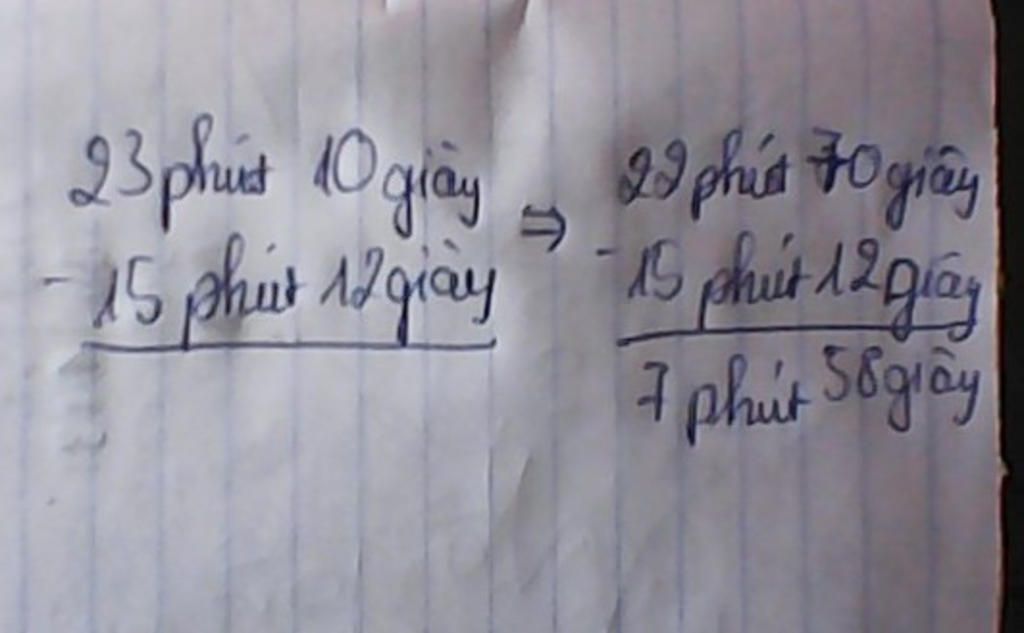 23 phút 10 giây ⇒ 22 phút 70 giây
- 15 phút 12 giây - 15 phút 12 giây
7 phút 58 giây